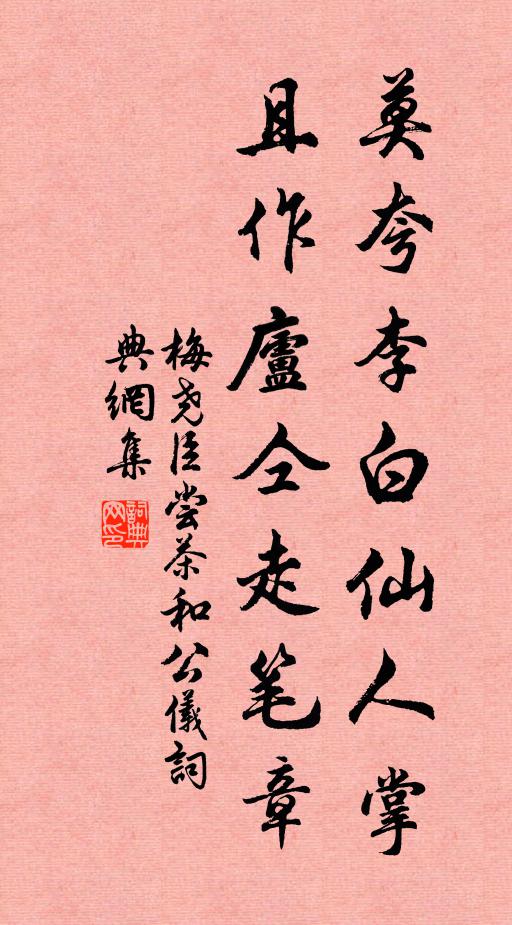 莫夸李白仙人掌
且作廬仝走笔章
梅尧臣尝茶和公儀詞
典網集
詞典
网印